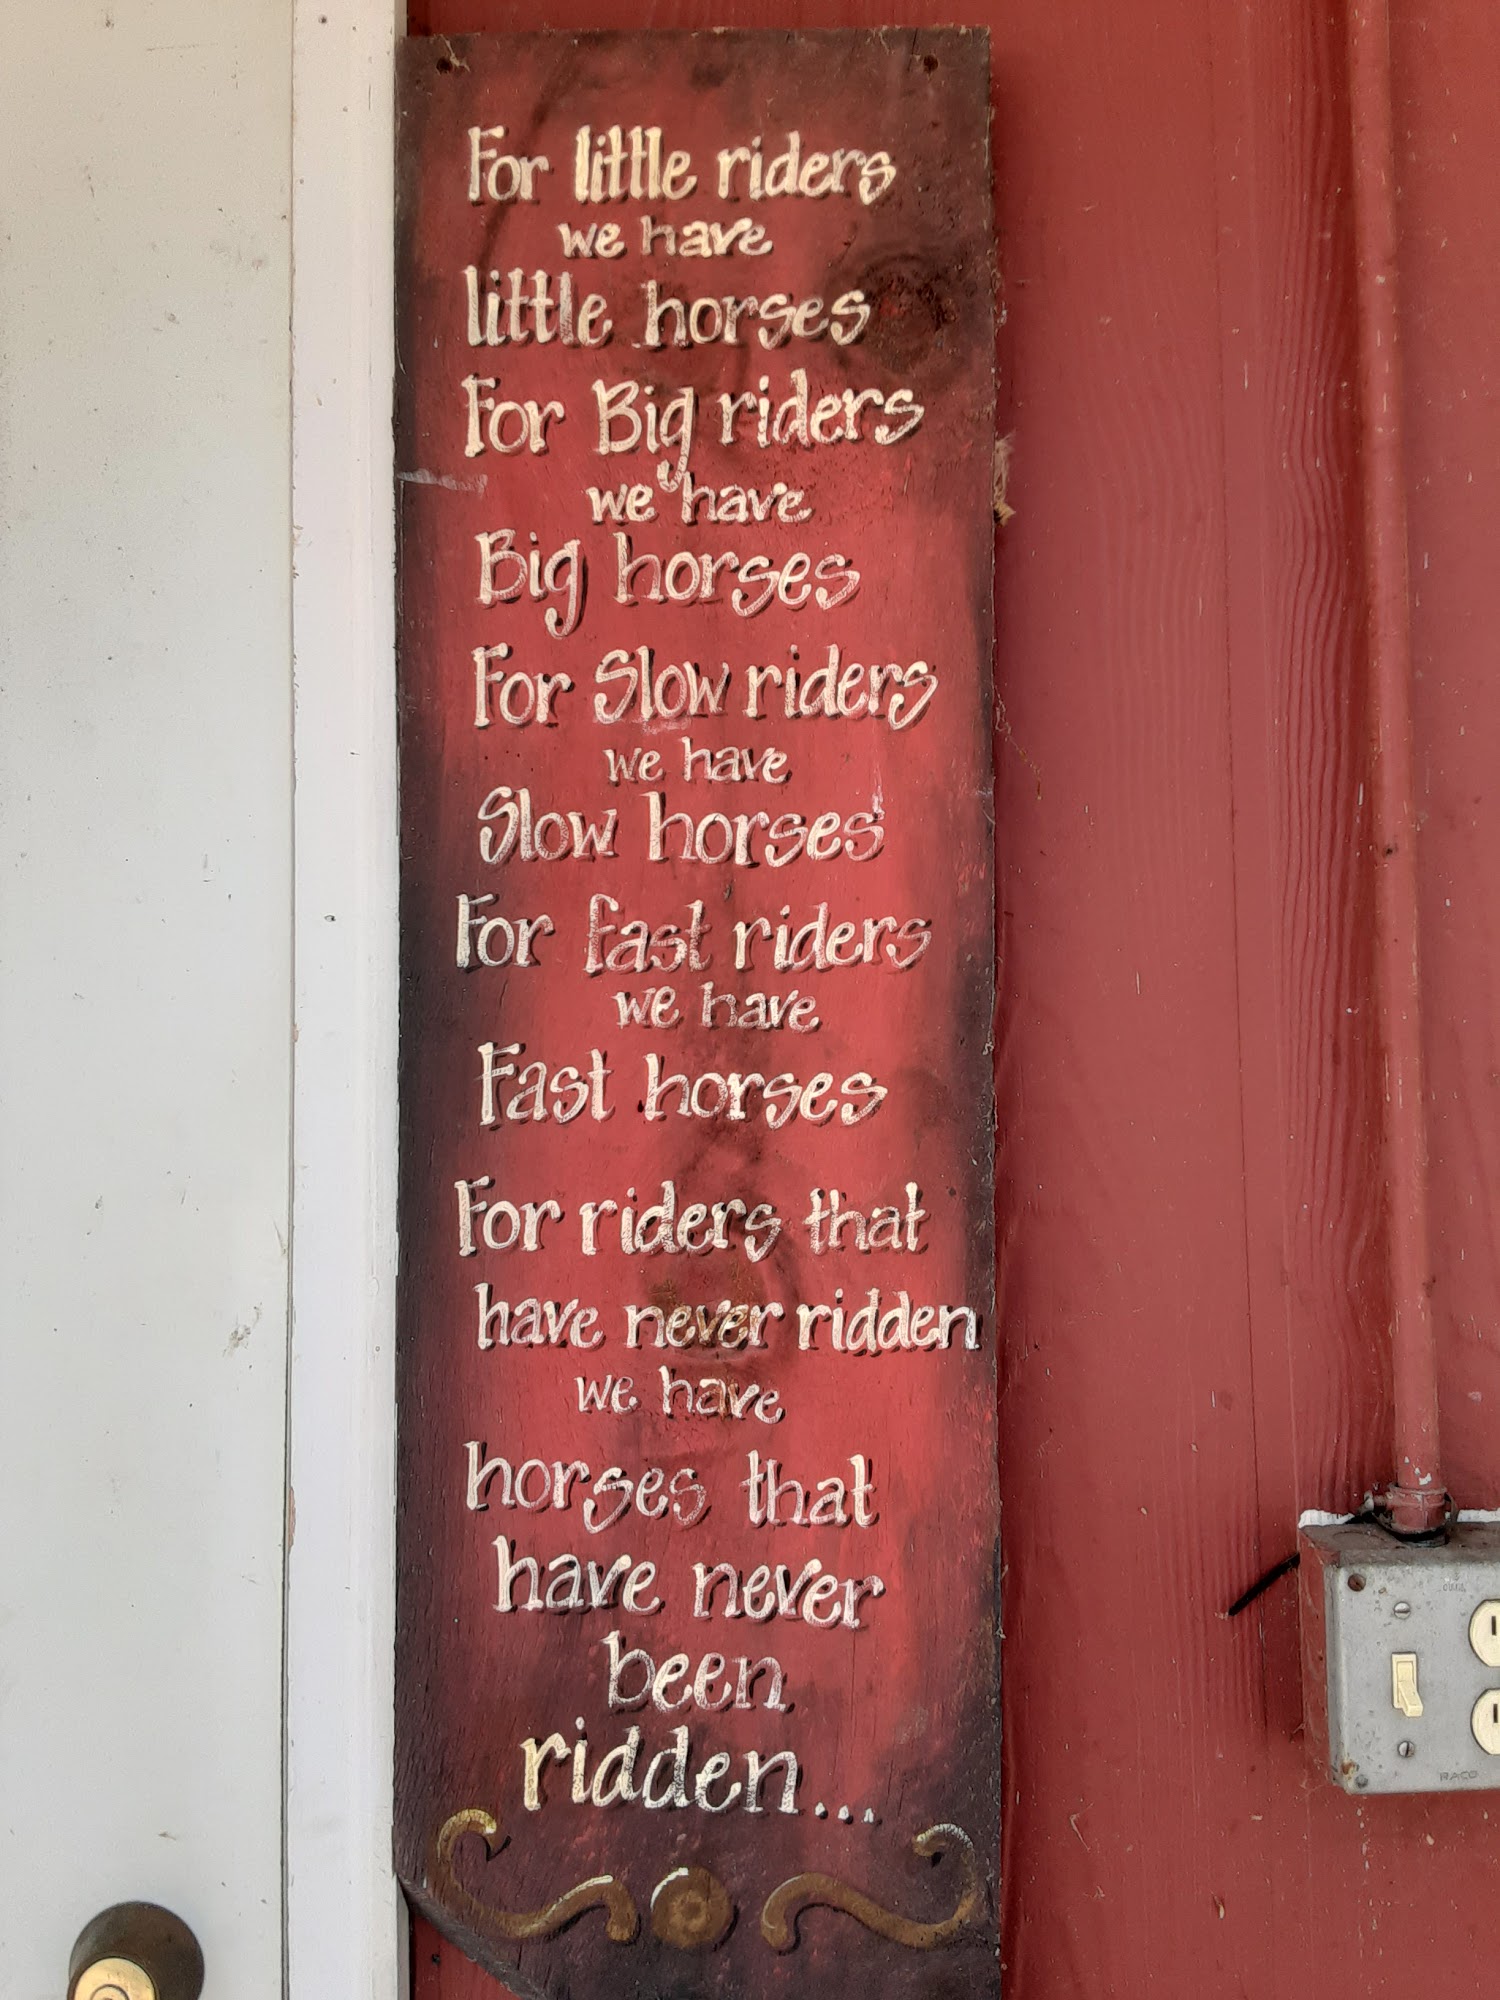 For little riders
we have
little horses
For Big riders
we have
Big horses
For Slow riders
we have
Slow horses
For fast riders
we have
Fast horses
For riders that
have never ridden
we have
horses that
have never
been
ridden...
RACO